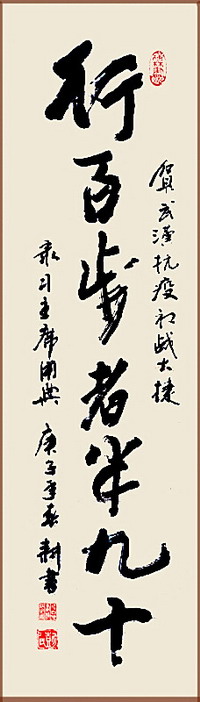 賀武漢抗疫初战大捷
行百步者半九十
录习主席用典
庚子年春